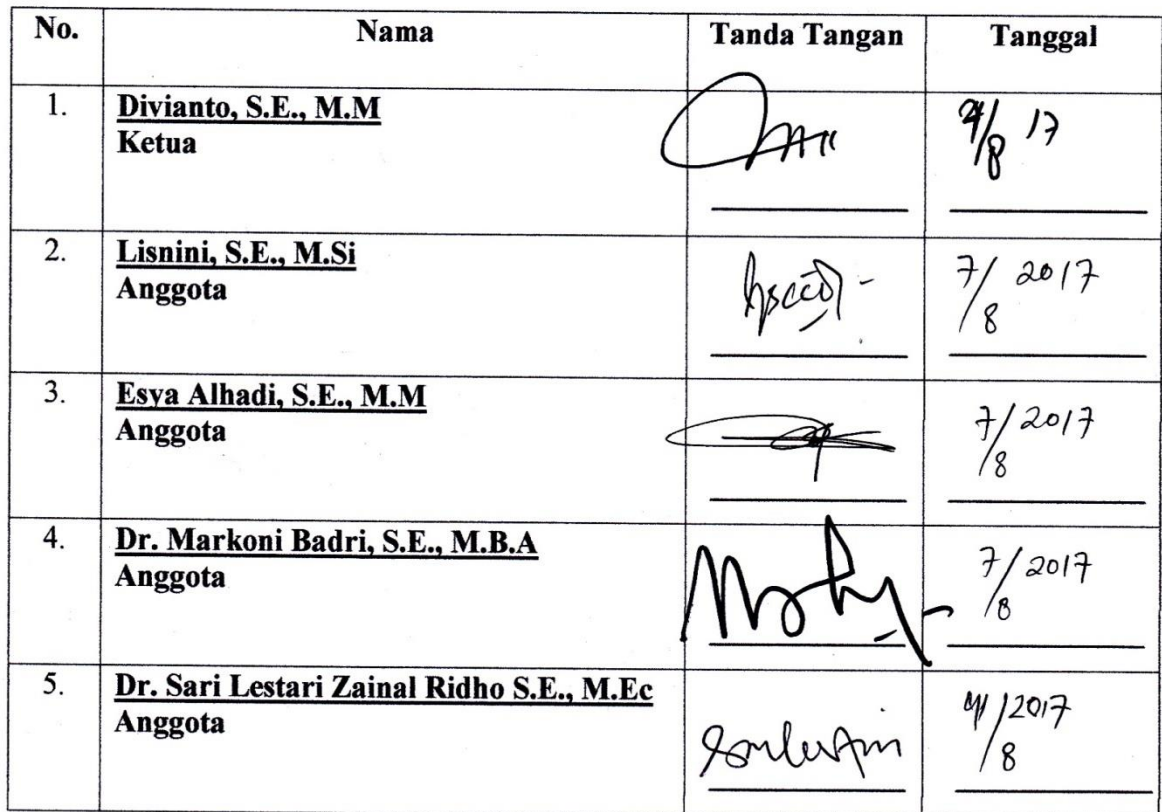 No. Nama Tanda Tangan Tanggal
1. Divianto, S.E., M.M
Ketua
/8 17
2. Lisnini, S.E., M.Si
Anggota
7/8 2017
3. Esya Alhadi, S.E., M.M
Anggota
7/8 2017
4. Dr. Markoni Badri, S.E., M.B.A
Anggota
7/8 2017
5. Dr. Sari Lestari Zainal Ridho S.E., M.Ec
Anggota
/8 2017